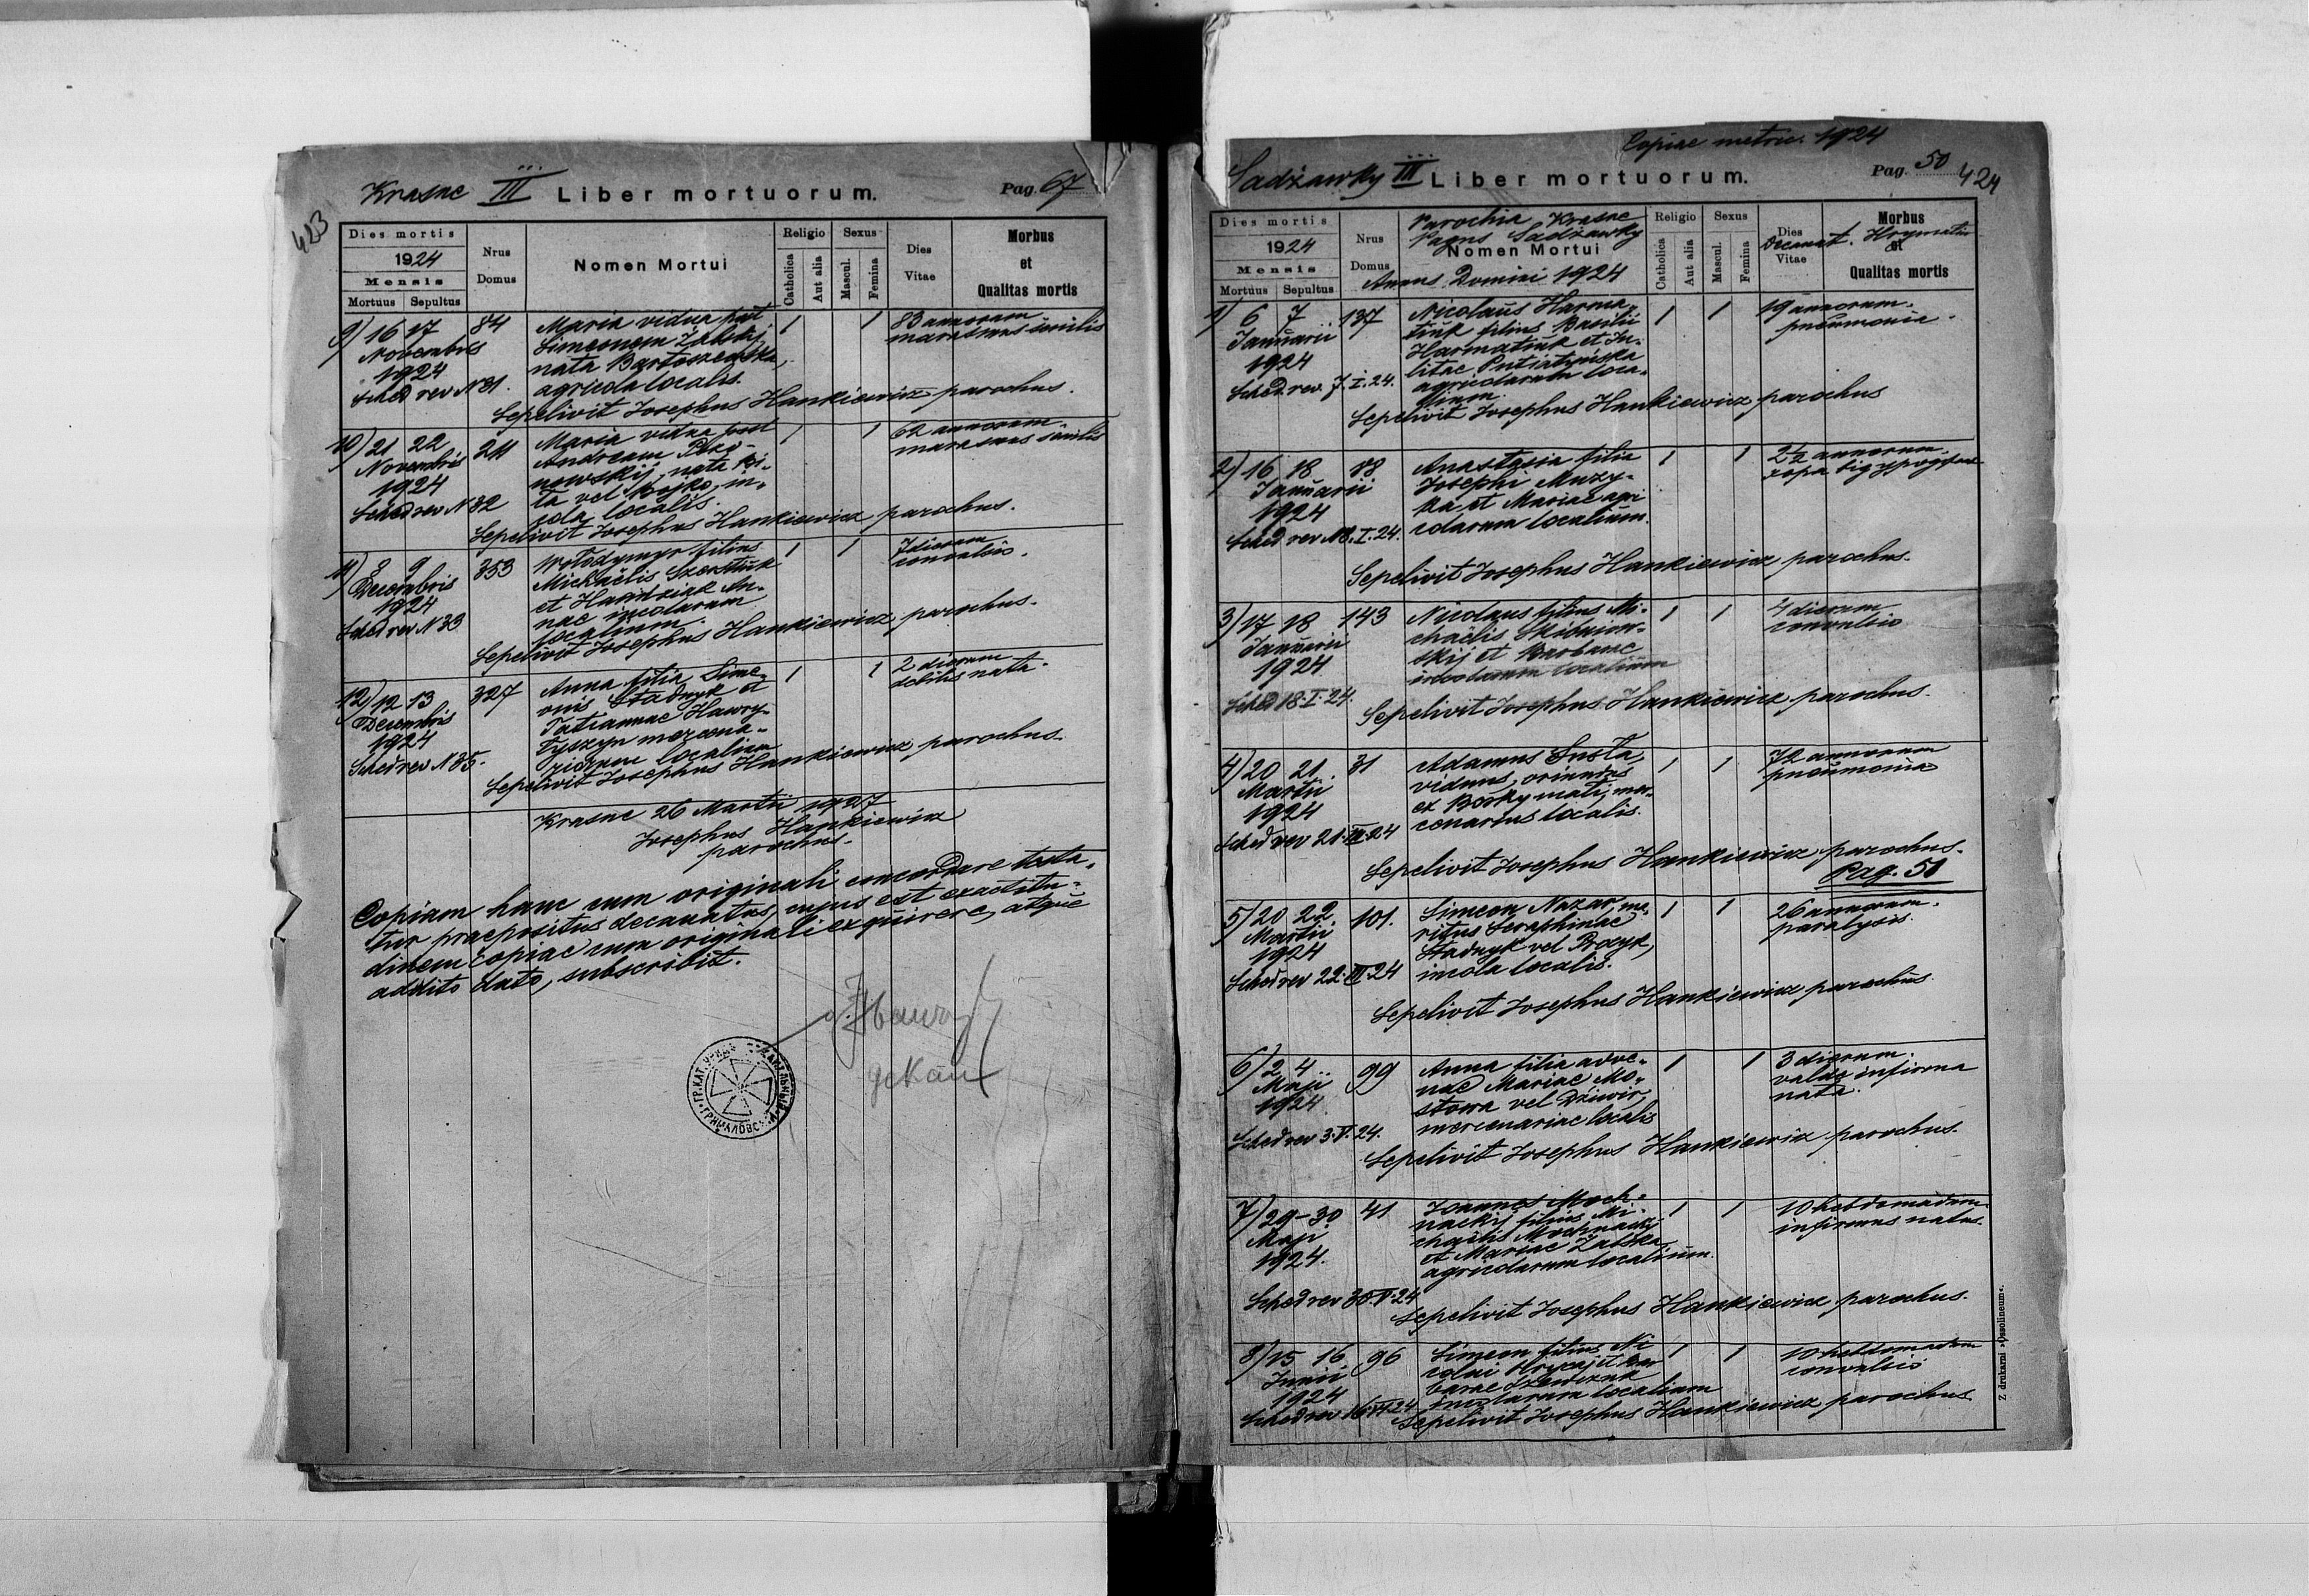 423
Krasne III Liber mortuorum. Pag. 67
Dies mortis
1924
Mensis
Mortuus Sepultus
Nrus
Domus
Nomen Mortui
Religio
Catholica
Aut alia
Sexus
Mascul.
Femina
Dies
Vitae
Morbus
et
Qualitas mortis
9) 16 17
Novembris
1924
Sched rev N 31.
84
Maria vidua post
Simeonem Zabskij,
nata Bartoszewska,
agricola localis.
1
1
83 annorum
marasmus senilis
Sepelivit Josephus Hankiewicz parochus.
10) 21 22
Novembris
1924
Sched rev N 32
211
Maria vidua post
Andream
nowskij, nata
ta vel Bojko, in-
cola localis.
1
1
62 annorum.
marasmus senilis
Sepelivit Josephus Hankiewicz parochus.
11) 8 9
Decembris
1924
Sched rev N 33
353
Wołodymyr filius
Michaëlis
et An-
nae incolarum
localium.
1
1
7 dierum.
convulsio.
Sepelivit Josephus Hankiewicz parochus.
12) 12 13
Decembris
1924
Sched rev N 35.
327
Anna filia Sime-
onis Stadnyk et
Tatiannae Hawry-
łyszyn mercena-
riorum localium
1
1
2 dierum
debilis nata.
Sepelivit Josephus Hankiewicz parochus.
Krasne 26 Martii 1927
Josephus Hankiewicz
parochus.
Copiam hanc cum originali concordare testa-
tur praepositus decanatus, cujus est exactitu-
dinem copiae cum originali exquirere, atque
addito dato, subscribit.
декан
Copiae metric. 1924
Sadżawky III Liber mortuorum. Pag. 50
424
Dies mortis
1924
Mensis
Mortuus Sepultus
Nrus
Domus
Parochia Krasne
Pagus Sadżawky
Nomen Mortui
Annus Domini 1924
Religio
Catholica
Aut alia
Sexus
Mascul.
Femina
Dies
Vitae
Decanat.
Morbus
et
Qualitas mortis
1) 6 7
Januarii
1924
Sched. rev. 7.I.24.
137
Nicolaus Harma-
tiuk filius Basilii
Harmatiuk et Ju-
litae Putiatyńska
agricolarum loca-
lium.
1
1
19 annorum.
pneumonia.
Sepelivit Josephus Hankiewicz parochus
2) 16 18
Januarii
1924
Sched rev 18.I.24.
88
Anastasia filia
Josephi Muzy-
ka et Mariae agri
colarum localium.
1
1
2½ annorum.
Sepelivit Josephus Hankiewicz parochus.
3) 17 18
Januarii
1924
Sched 18.I.24.
143
Nicolaus filius Mi-
chaëlis
skij et Barbarae
incolarum localium
1
1
4 dierum
convulsio
Sepelivit Josephus Hankiewicz parochus.
4) 20 21.
Martii
1924
Sched rev 21.III.24
31
Adamus Susła,
viduus, oriundus
ex mer-
cenarius localis.
1
1
72 annorum
pneumonia
Sepelivit Josephus Hankiewicz parochus.
Pag. 51
5) 20 22
Martii
1924
Sched rev 22.III.24
101.
Simeon Nazar, ma-
ritus Seraphinae
Stadnyk vel Procyk,
incola localis.
1
1
26 annorum.
paralysis.
Sepelivit Josephus Hankiewicz parochus
6) 2 4
Maji
1924
Sched rev 3.V.24.
99
Anna filia adve-
nae Mariae Mo-
stowa vel
mercenariae localis
1
1
3 dierum.
valde infirma
nata.
Sepelivit Josephus Hankiewicz parochus.
7) 29-30
Maji
1924.
Sched rev 30.V.24
41
Joannes Moch-
nackij filius Mi-
chaëlis Mochnackij
et Mariae Zabska
agricolarum localium.
1
1
10 hebdomadum
infirmus natus.
Sepelivit Josephus Hankiewicz parochus.
8) 15 16
Junii
1924
Sched rev 16.VI.24
96
Simeon filius Ni
colai Hrycaj et Bar
barae
incolarum localium
1
1
10 hebdomadum
convulsio
Sepelivit Josephus Hankiewicz parochus
Z drukarni »Ossolineum«.